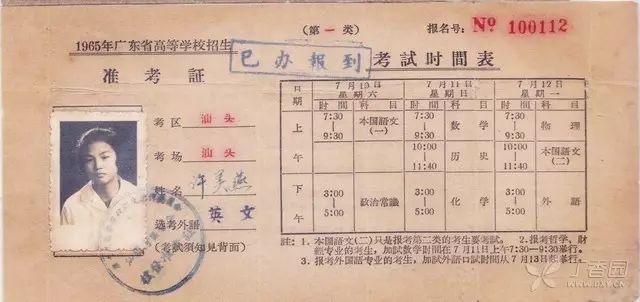 1965年广东省高等学校招生
准考証
(第一类)
报名号: № 100112
已办报到
考試时間表
考区 汕头
考场 汕头
姓名 许美燕
选考外語 英文
(考試须知見背面)
日期 7月10日 星期六 7月11日 星期日 7月12日 星期一
时間 科目 时間 科目 时間 科目
上午 7:30-9:30 本国語文(一) 7:30-9:30 数学 7:30-9:30 物理
10:00-11:40 历史 10:00-11:40 本国語文(二)
下午 3:00-5:00 政治常識 3:00-5:00 化学 3:00-5:00 外語
註:1.本国語文(二)只是报考第二类的考生要考試。 2.报考哲学、財經专业的考生,加試数学时間在7月11日上午7:30—9:30举行。
3.报考外国語专业的考生,加試外語口試时間从7月13日起举行。
丁香园
WWW.DXY.CN